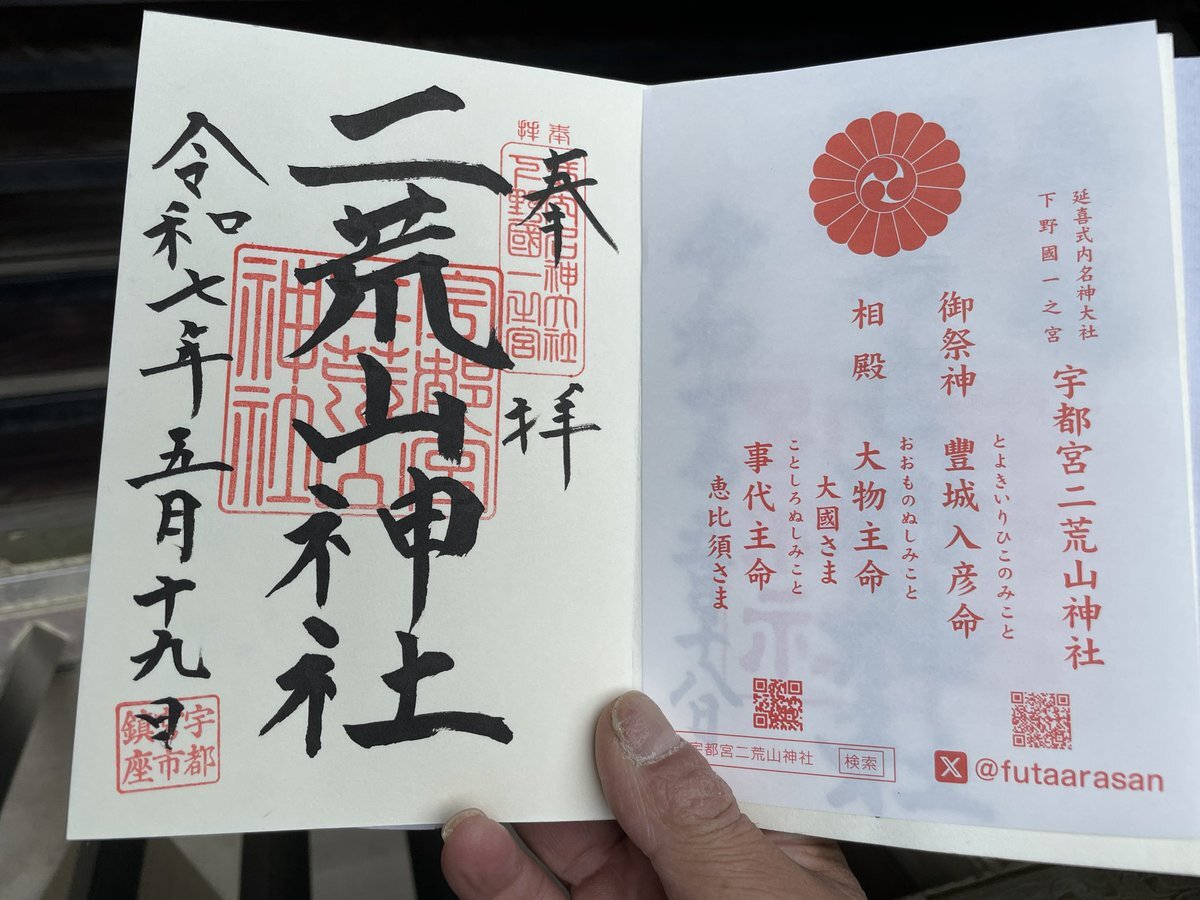 延喜式内名神大社
下野國一之宮
宇都宮二荒山神社
御祭神
とよきいりひこのみこと
豐城入彦命
相殿
おおものぬしみこと
大物主命
大國さま
ことしろぬしみこと
事代主命
恵比須さま
@futaarasan
宇都宮二荒山神社 検索
奉拝
延喜式内名神大社
下野國一之宮
奉拝
二荒山神社
宇都宮
二荒山
神社
令和七年五月十九日
宇都
宮市
鎮座